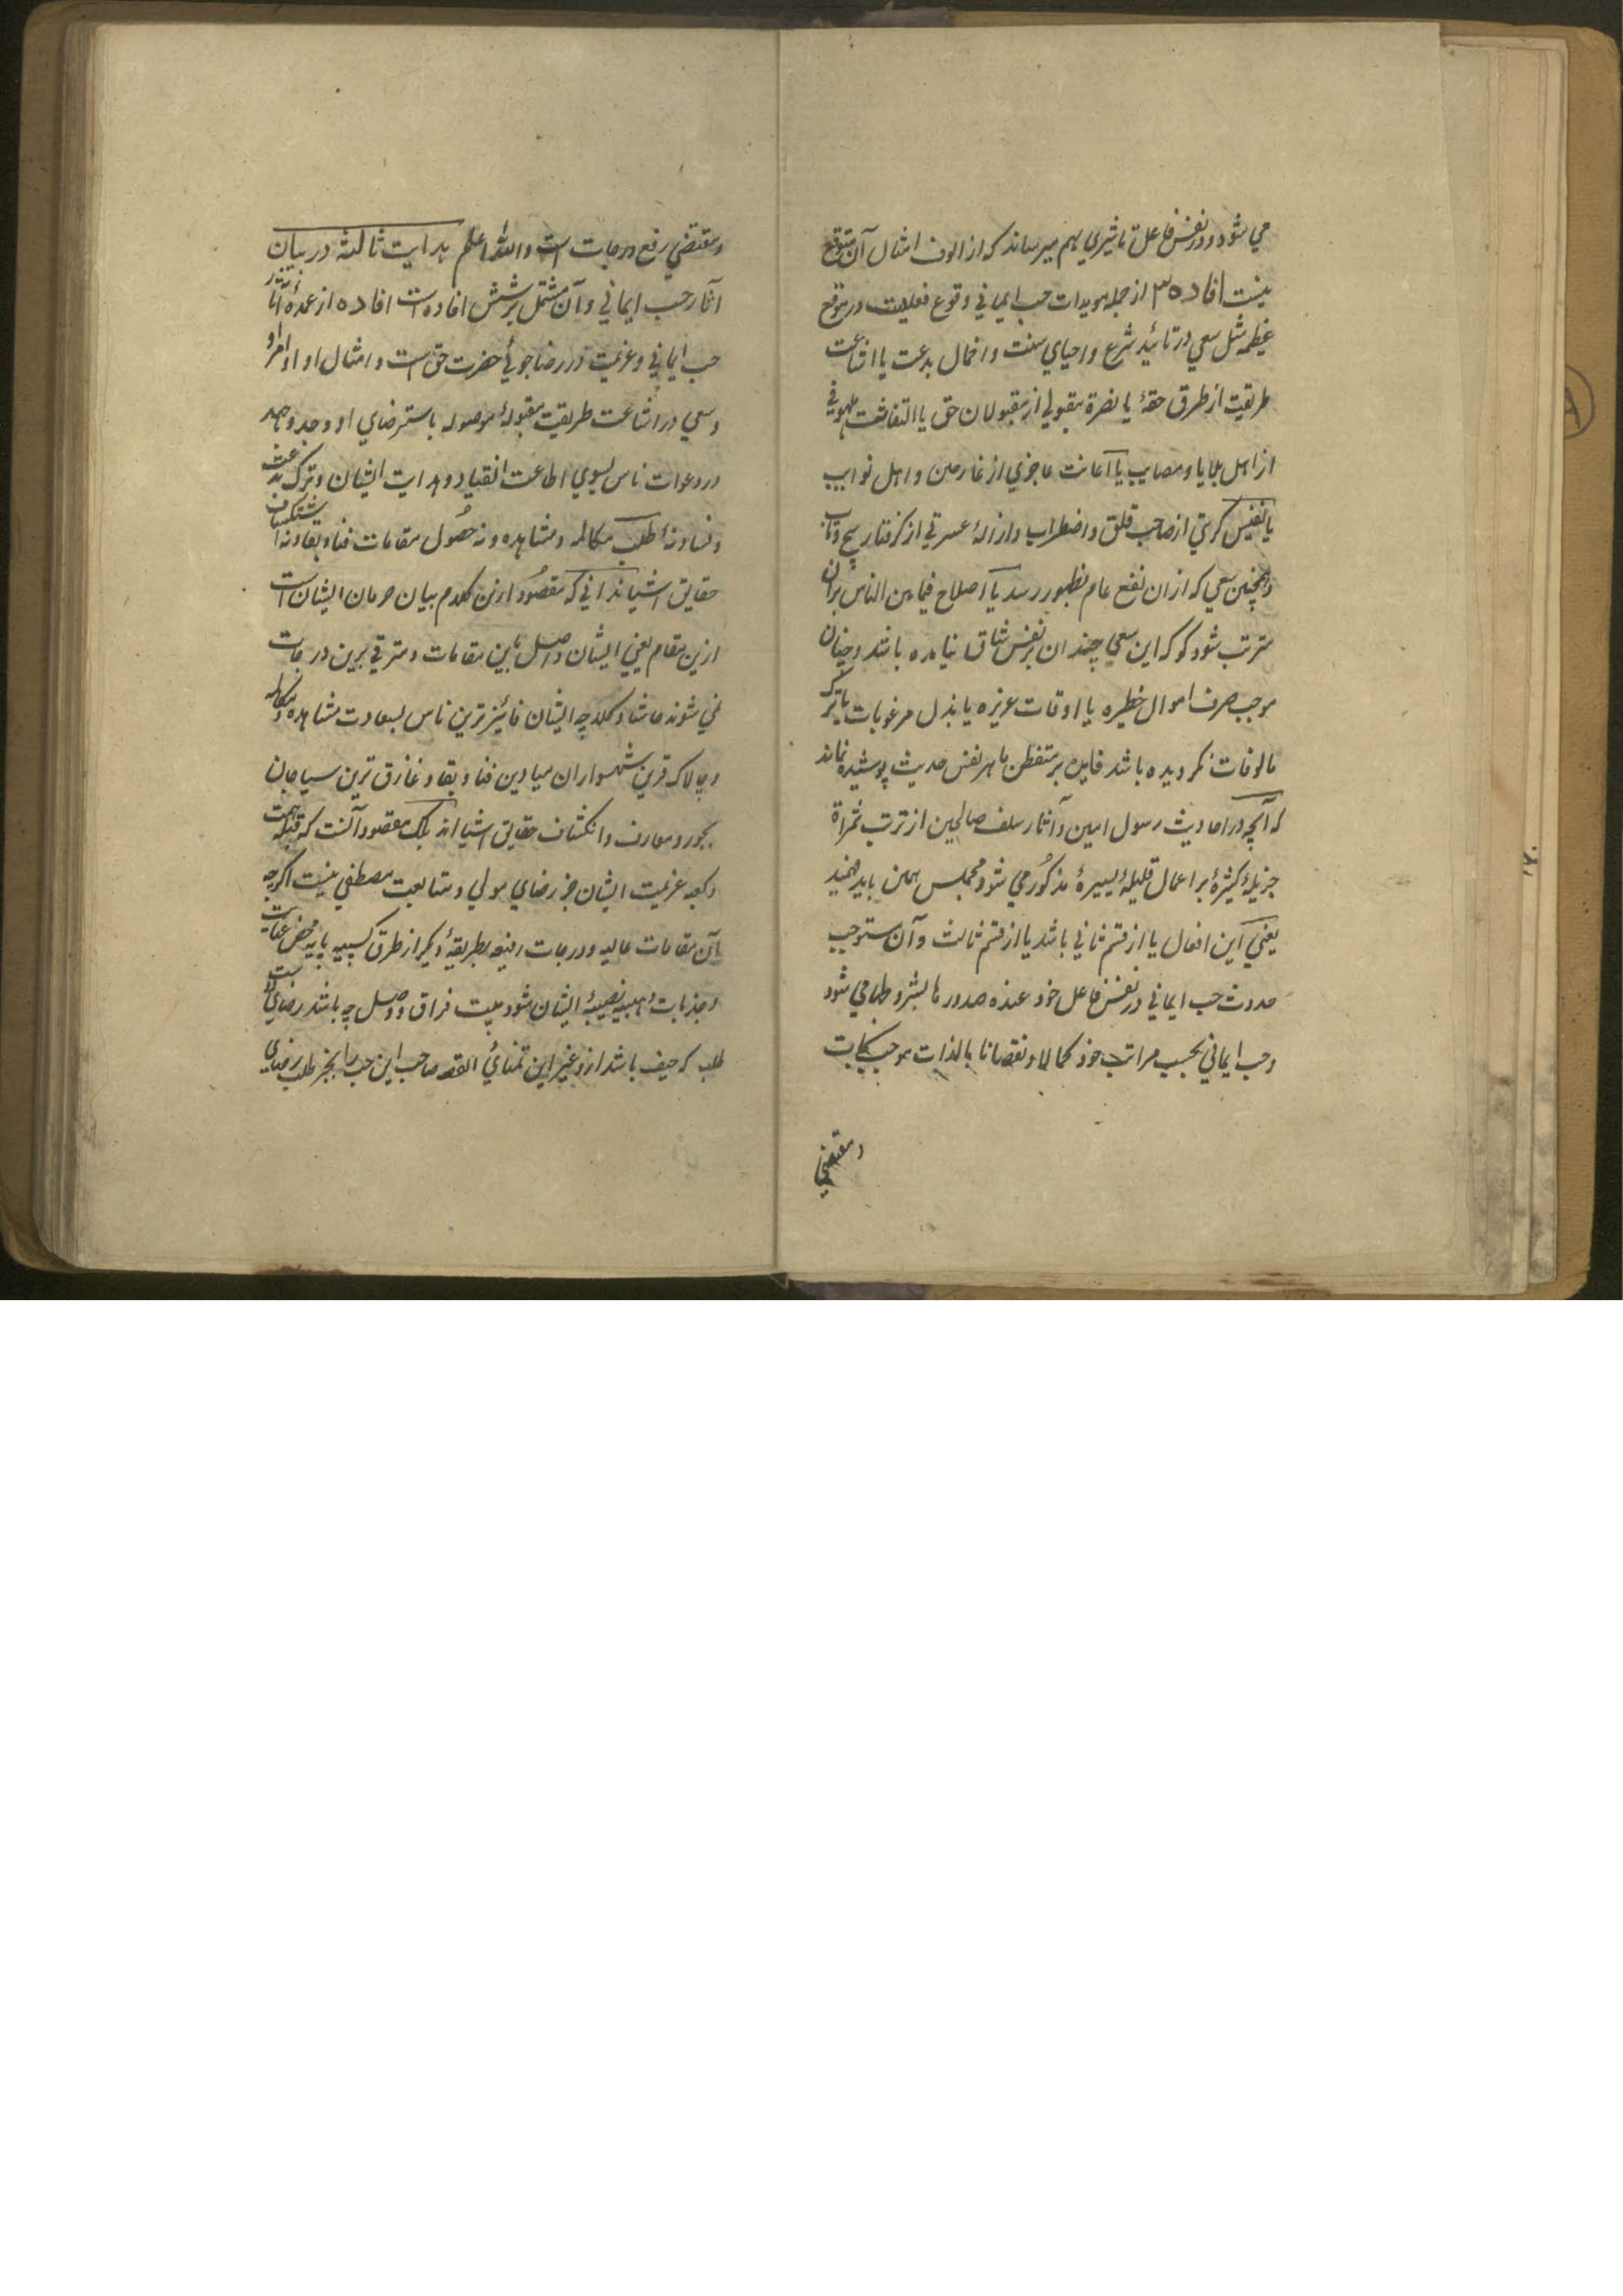 می شود و در نفس فاعل تاثیری بهم میرساند که از الوف امثال آن متوقع
نیست افاده ۳ از جمله مویدات حب ایمانی وقوع فعلیست در موقع
عظیمه مثل سعی در تائید شرع و احیای سنت و اخمال بدعت یا اشاعت
طریقت از طرق حقهٔ یا نضرة مقبولی از مقبولان حق یا التفات ملهوفی
از اهل بلایا و مصایب یا اعانت عاجزی از غارمین و اهل نوایب
یا تنفیس کربتی از صاحب قلق و اضطراب و ازالهٔ عسرتی از گرفتار پیچ و تاب
و همچنین سعی که از ان نفع عام بظهور رسد یا اصلاح فیما بین الناس بران
مترتب شود گو که این سعی چندان بر نفس شاق نیامده باشد و چنان
موجب صرف اموال خطیره یا اوقات عزیزه یا بذل مرغوبات یا ترک
مالوفات نگردیده باشد فایده بر متفطن ماهر بفن حدیث پوشیده نماند
که آنچه در احادیث رسول امین و آثار سلف صالحین از ترتب ثمراة
جزیلهٔ کثیرهٔ بر اعمال قلیلهٔ یسیرهٔ مذکور می شود محملس همین باید فهمید
یعنی این افعال یا از قسم ثانی باشد یا از قسم ثالث و آن مستوجب
حدوث حب ایمانی در نفس فاعل خود عنده صدورها بشروطها می شود
و حب ایمانی بحسب مراتب خود کمالا و نقصانا بالذات موجب نجات
و مقتضی
و مقتضی رفع درجات است والله اعلم هدایت ثالثه در بیان
آثار حب ایمانی و آن مشتمل بر شش افاده است افاده از عمدهٔ آثار
حب ایمانی و عزیمت در رضا جوئی حضرت حق است و امتثال اوامر او
و سعی در اشاعت طریقت مقبولهٔ موصوله باسترضای او و جد و جهد
در دعوات ناس بسوی اطاعت انقیاد و هدایت ایشان و ترک بدعت
و فساد نه طلب مکالمه و مشاهده و نه حصول مقامات فنا و بقا و نه انکشاف
حقایق اشیا ندانی که مقصود ازین کلام بیان حرمان ایشان است
ازین مقام یعنی ایشان واصل باین مقامات و مترقی برین درجات
نمی شوند حاشا و کلا چه ایشان فائزترین ناس بسعادت مشاهده و مکالمه
و چالاک ترین شهسواران میادین فنا و بقا و غارق ترین سیاحان
بحور و معارف و انکشاف حقایق اشیا اند بلک مقصود آنست که قبله همت
و کعبه عزیمت ایشان جز رضای مولی و متابعت مصطفی نیست اگرچه
بآن مقامات عالیه و درجات رفیعه بطریقهٔ دیگر از طرق کسبیه یا به محض عنایت
و جذبات وهبیه نصیبهٔ ایشان شود بیت فراق و وصل چه باشد رضای دوست
طلب که حیف باشد ازو غیر این تمنائی القصه صاحب این حب را بجز طلب رضای